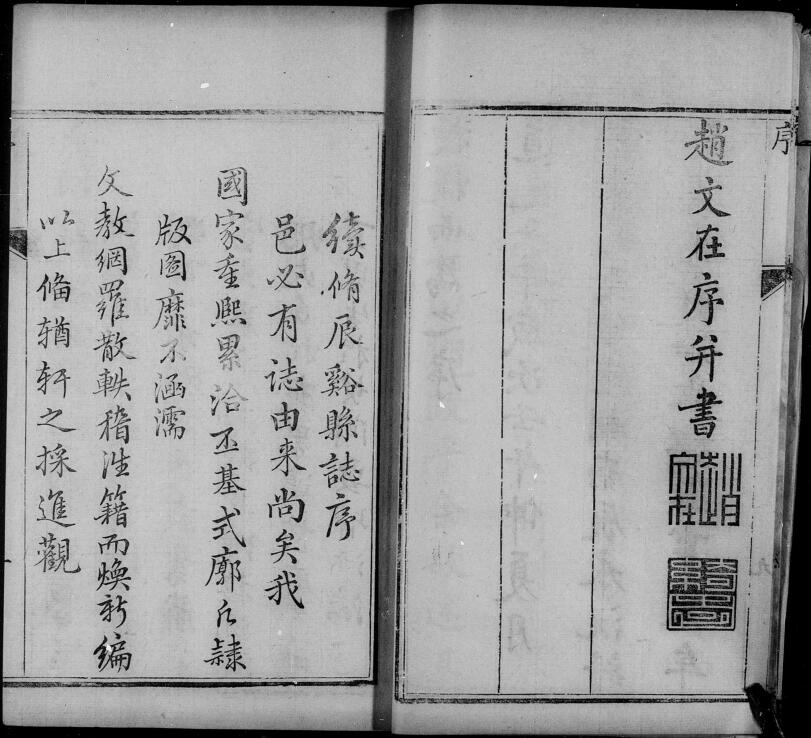 序
趙文在序并書
續脩辰谿縣誌序
邑必有誌由来尚矣我
國家重熙累洽丕基式廓凡隸
版圖靡不涵濡
文教網羅散軼稽往籍而煥新編
以上俻輶軒之採進觀